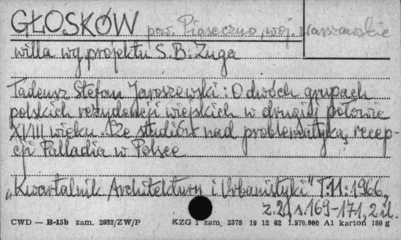 GŁOSKÓW pow. Piaseczno, woj. Warszawskie
willa wg projektu S.B. Zuga
Tadeusz Stefan Jaroszewski: O dwóch grupach
polskich rezydencji wiejskich w drugiej połowie
XVIII wieku. Ze studiów nad problematyką recep-
cji Palladia w Polsce
"Kwartalnik Architektury i Urbanistyki" T.11: 1966,
z.2, s.169-171, 2 il.
CWD — B-15b zam. 2832/ZW/P KZG 1 zam. 2375 19 12 62 1.570.000 A1 karton 180 g